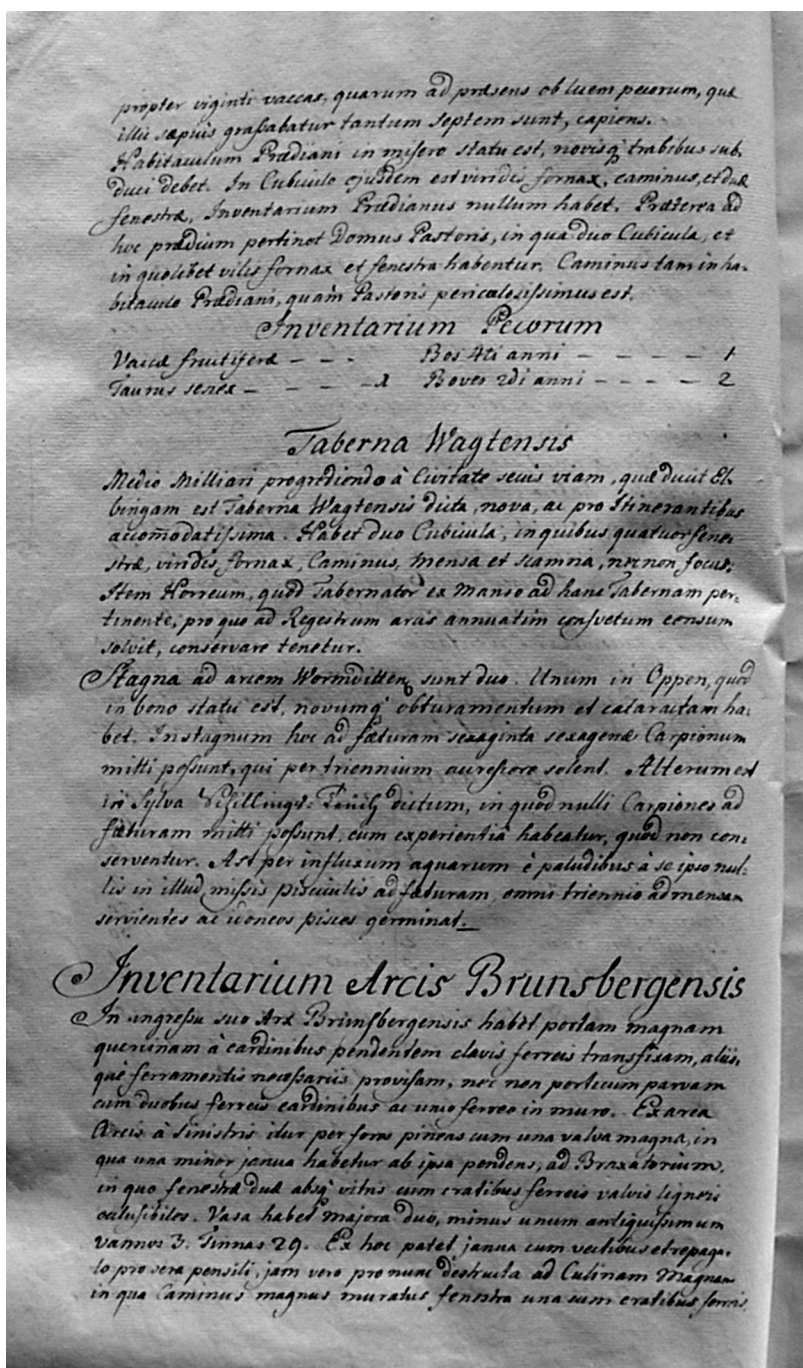 propter viginti vaccas, quarum ad præsens ob luem pecorum, quæ
illic sæpius graßabatur tantum septem sunt, capiens.
Habitaculum Prædiani in misero statu est, novisq; trabibus sub-
duci debet. In Cubiculo ejusdem est viridis fornax, caminus, et duæ
fenestræ, Inventarium Prædianus nullum habet. Præterea ad
hoc prædium pertinet Domus Pastoris, in qua duo Cubicula, et
in quolibet vilis fornax et fenestra habentur. Caminus tam in ha-
bitaculo Prædiani, quam Pastoris periculosissimus est.
Inventarium Pecorum
Vaccæ fructiferæ – – - Bos 4ti anni – – – – – 1
Taurus senex – – – – 1 Boves 2di anni – – – – – 2
Taberna Wagtensis
Medio Milliari progrediendo à Civitate secus viam, quæ ducit El-
bingam est Taberna Wagtensis dicta, nova, ac pro Itinerantibus
accom̄odatissima. Habet duo Cubicula, in quibus quatuor fene-
stræ, viridis fornax, Caminus, mensa et scamna, nec non focus.
Item Horreum, quod Tabernator ex Manso ad hanc Tabernam per-
tinente, pro quo ad Regestrum arcis annuatim consvetum censum
solvit, conservare tenetur.
Stagna ad arcem Wormditten sunt duo. Unum in Oppen, quod
in bono statu est, novumq; obturamentum et cataractam ha-
bet. In stagnum hoc ad fæturam sexaginta sexagenæ Carpionum
mitti possunt, qui per triennium accrescere solent. Alterum est
in Sylva dictum, in quod nulli Carpiones ad
fæturam mitti possunt, cum experientia habeatur, quod non con-
serventur. Ast per influxum aquarum è paludibus à se ipso nul-
lis in illud missis pisciculis ad fæturam, omni triennio ad mensam
servientes ac idoneos pisces germinat.
Inventarium Arcis Brunsbergensis
In ingressu suo Arx Brunsbergensis habet portam magnam
quercinam à cardinibus pendentem clavis ferreis transfixam, aliis-
que ferramentis necessariis provisam, nec non porticum parvam
cum duobus ferreis cardinibus ac unco ferreo in muro. Ex area
Arcis à sinistris itur per fores pineas cum una valva magna, in
qua una minor janua habetur ab ipsa pendens, ad Braxatorium,
in quo fenestræ duæ absq; vitris cum cratibus ferreis valvis ligneis
oclusibiles. Vasa habet majora duo, minus unum antiquissimum
vannos 3. Tinnas 29. Ex hoc patet janua cum vectibus et repagu-
lo pro sera pensili, jam vero pro nunc destructa ad Culinam Magnam
in qua Caminus magnus muratus fenestra una cum cratibus ferreis